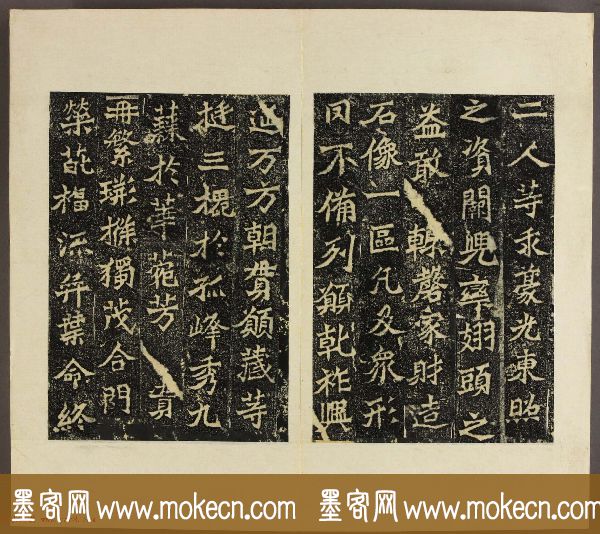 二人等求豪光東照
之資闕兜率翅頭之
益敢輒罄家財造
石像一區凡及衆形
罔不備列願乾祚興
延万方朝貫願藏等
挺三槐於孤峰秀九
蕀於華菀芳實
再繁獨茂合門
榮葩福流奕葉命終
墨客网 www.mokecn.com 墨客网 www.mokecn.com